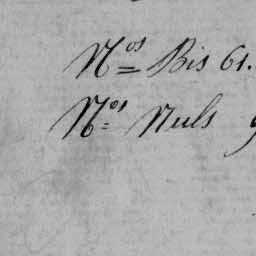 Nos Bis 61.
Nos Nuls